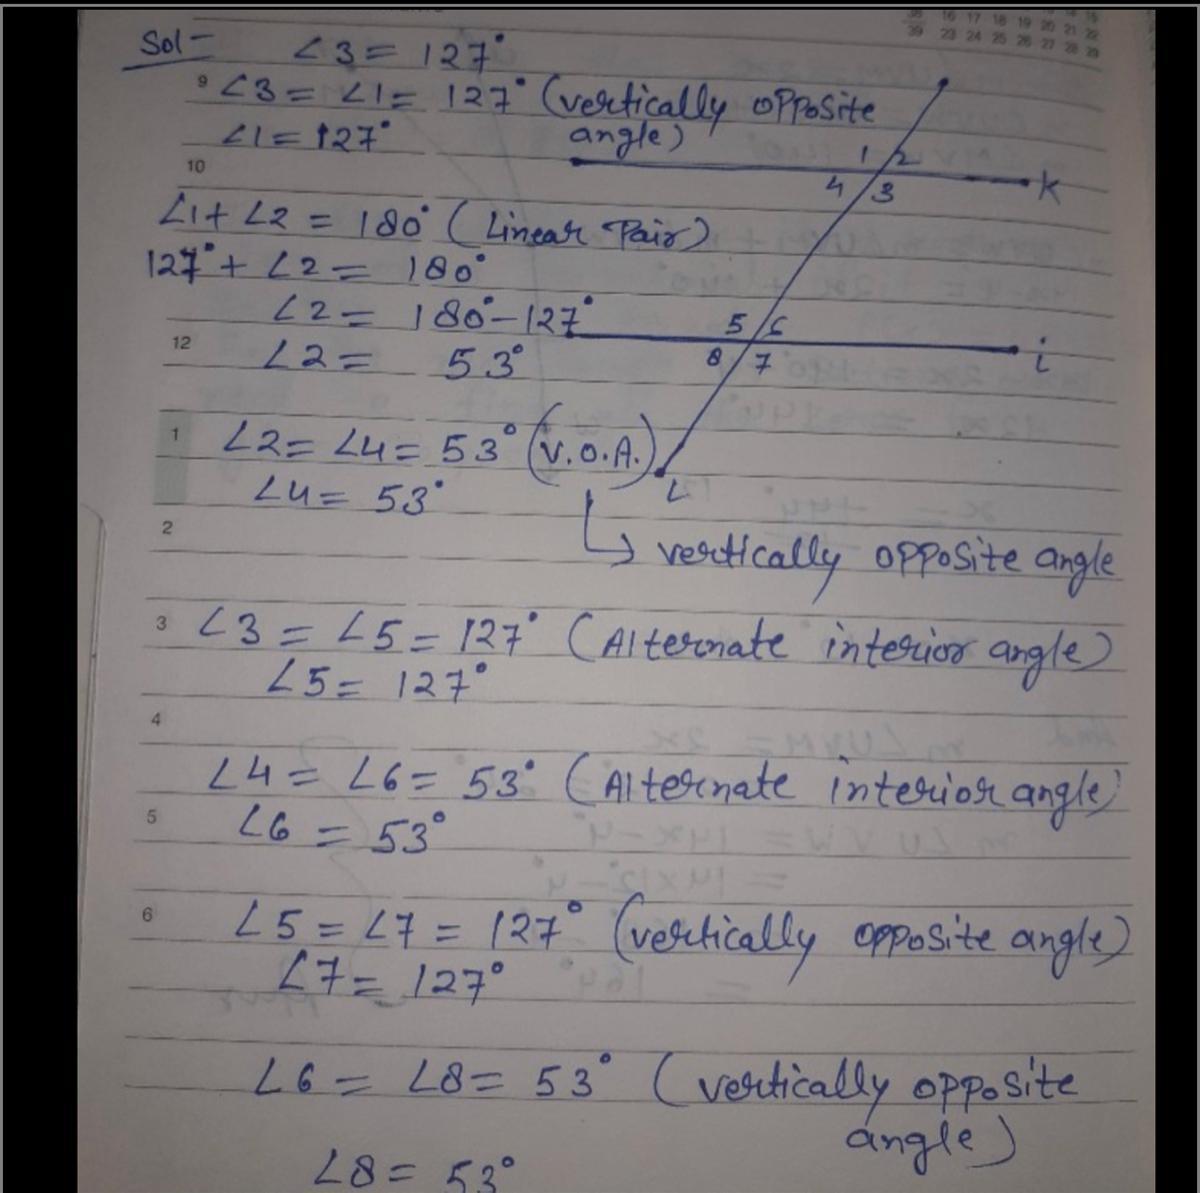 Sol -
∠3 = 127°
9
∠3 = ∠1 = 127° (vertically opposite
angle)
∠1 = 127°
10
1 2
4 3
K
∠1 + ∠2 = 180° (Linear Pair)
127° + ∠2 = 180°
∠2 = 180° - 127°
12
∠2 = 53°
5 6
8 7
i
1
∠2 = ∠4 = 53° (V.O.A.)
∠4 = 53°
L
2
↳ vertically opposite angle
3
∠3 = ∠5 = 127° (Alternate interior angle)
∠5 = 127°
4
∠4 = ∠6 = 53° (Alternate interior angle)
5
∠6 = 53°
6
∠5 = ∠7 = 127° (vertically opposite angle)
∠7 = 127°
∠6 = ∠8 = 53° (vertically opposite
angle)
∠8 = 53°